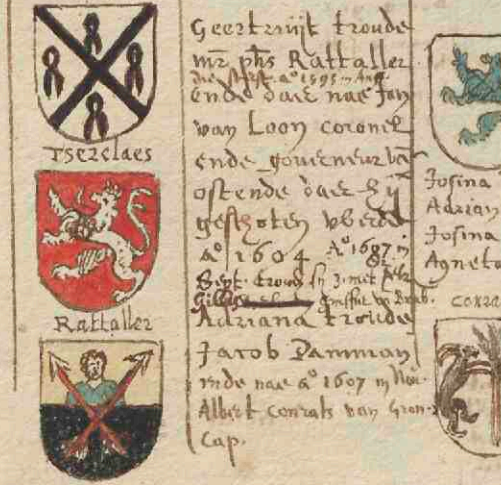 Tserclaes
Rattaller
Geertruijt troude
mr phs Rattaller
die sterft aº 1595 in Aug
ende daer nae Jan
van Loon coronel
ende gouverneur
ostende daer hij
geschoten
aº 1604 Aº 1607 in
Sept. troud sij 3. met
Gillis
Adriana troude
Jacob Damman
inde nae aº 1607 in
Albert Conrats van
Cap.
Josina
Adrian
Josina
Agneta